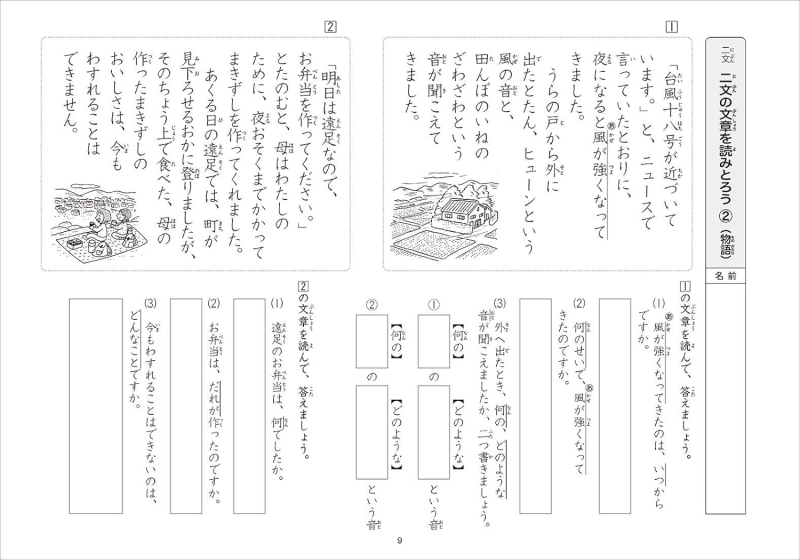 二文 二文の文章を読みとろう ② （物語）
名前
1
「台風十八号が近づいて
います。」と、ニュースで
言っていたとおりに、
夜になると㋐風が強くなって
きました。
うらの戸から外に
出たとたん、ヒューンという
風の音と、
田んぼのいねの
ざわざわという
音が聞こえて
きました。
2
「明日は遠足なので、
お弁当を作ってください。」
とたのむと、母はわたしの
ために、夜おそくまでかかって
まきずしを作ってくれました。
あくる日の遠足では、町が
見下ろせるおかに登りましたが、
そのちょう上で食べた、母の
作ったまきずしの
おいしさは、今も
わすれることは
できません。
1の文章を読んで、答えましょう。
(1) ㋐風が強くなってきたのは、いつから
ですか。
(2) 何のせいで、㋐風が強くなって
きたのですか。
(3) 外へ出たとき、何の、どのような
音が聞こえましたか。二つ書きましょう。
① 【何の】 の 【どのような】 という音
② 【何の】 の 【どのような】 という音
2の文章を読んで、答えましょう。
(1) 遠足のお弁当は、何でしたか。
(2) お弁当は、だれが作ったのですか。
(3) 今もわすれることはできないのは、
どんなことですか。
9